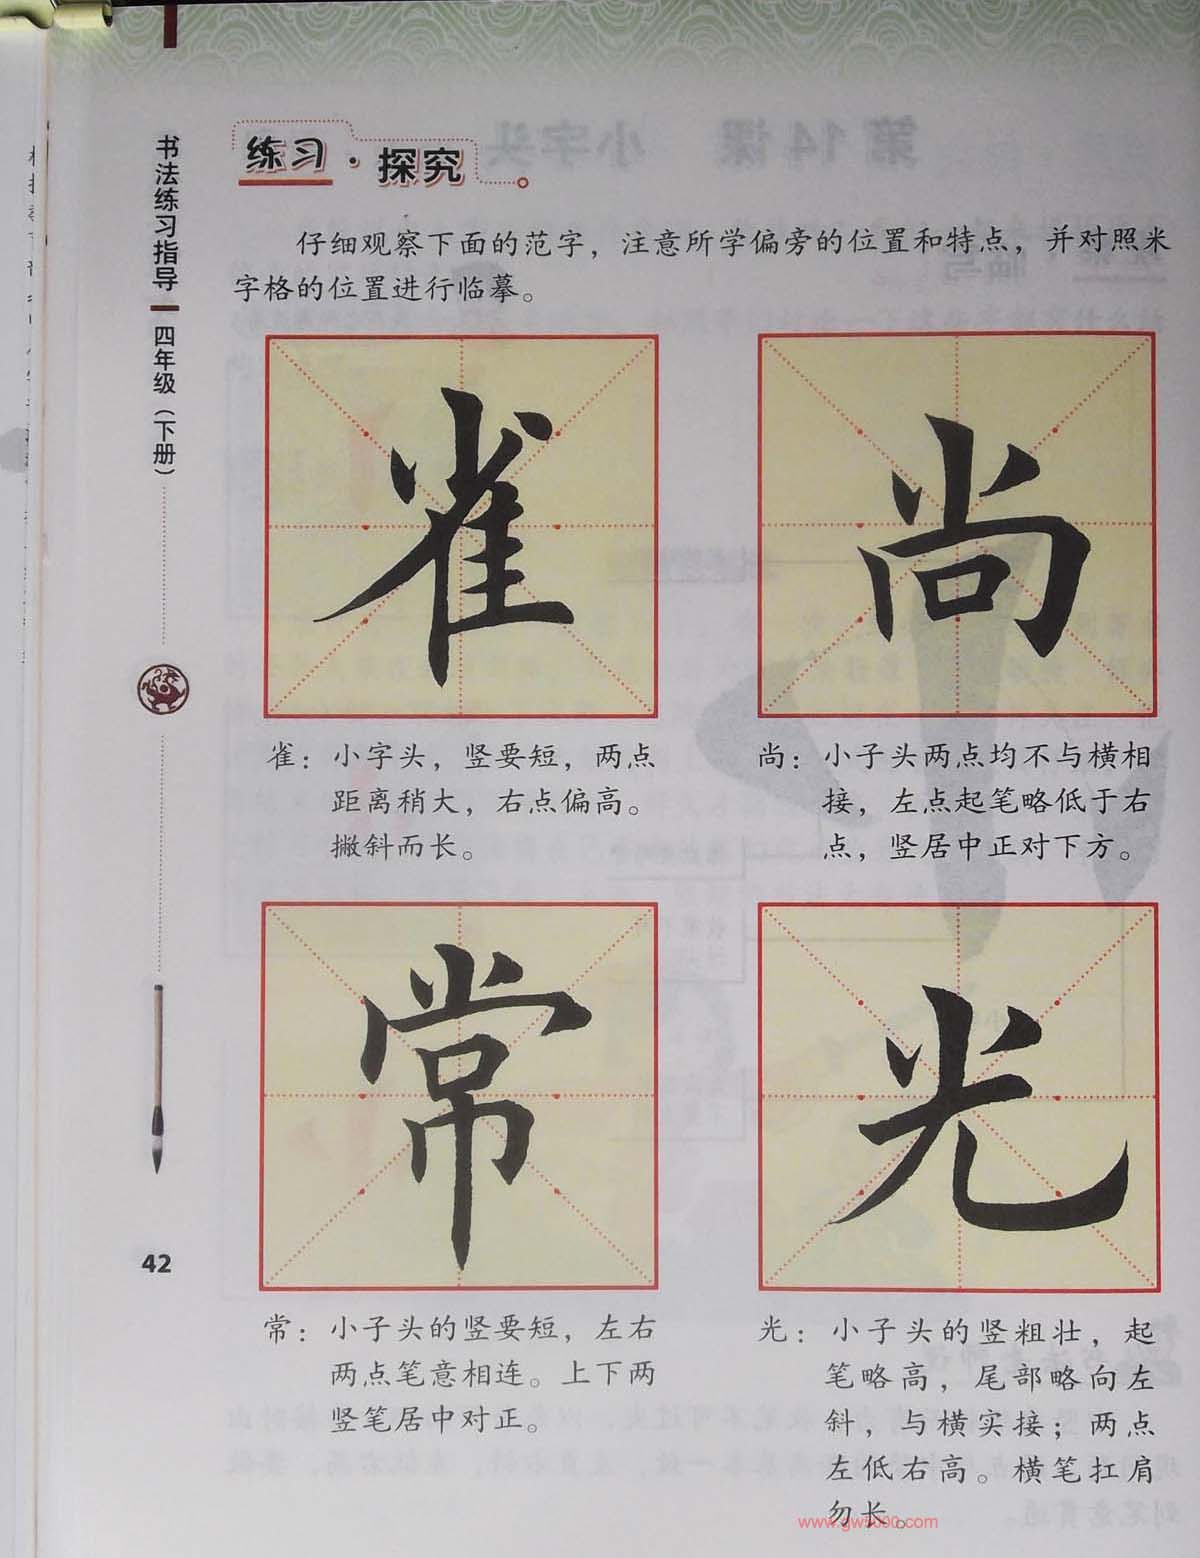 书法练习指导
四年级（下册）
42
练习·探究
仔细观察下面的范字，注意所学偏旁的位置和特点，并对照米
字格的位置进行临摹。
雀
雀：小字头，竖要短，两点
距离稍大，右点偏高。
撇斜而长。
尚
尚：小子头两点均不与横相
接，左点起笔略低于右
点，竖居中正对下方。
常
常：小子头的竖要短，左右
两点笔意相连。上下两
竖笔居中对正。
光
光：小子头的竖粗壮，起
笔略高，尾部略向左
斜，与横实接；两点
左低右高。横笔扛肩
勿长。
www.gw5000.com